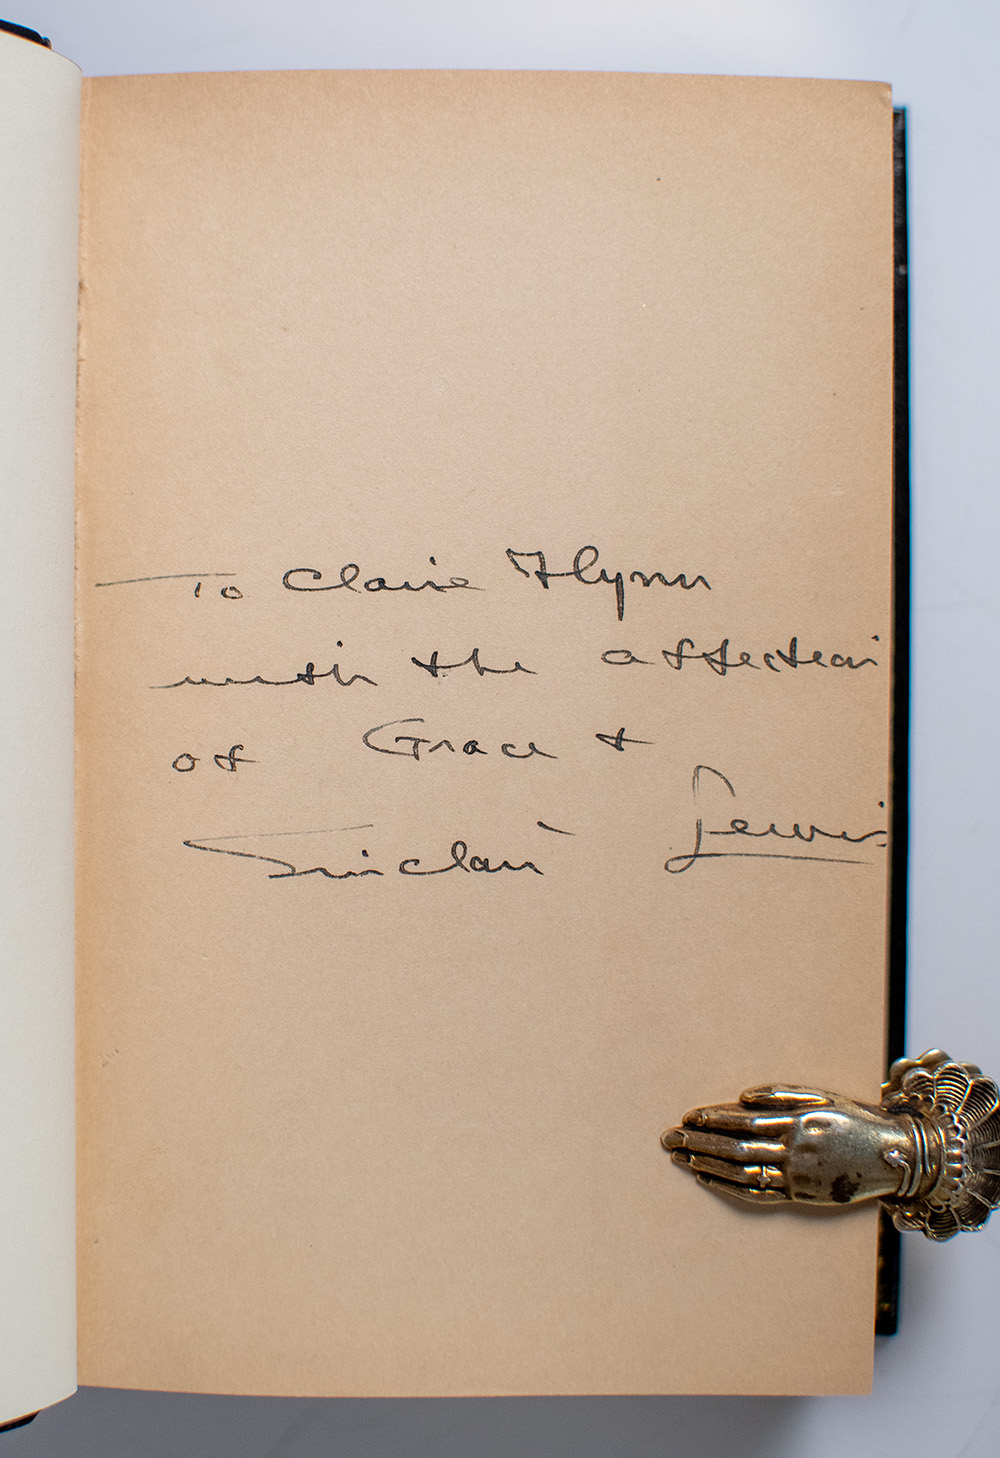 To Claire Flynn
with the affection
of Grace +
Sinclair Lewis